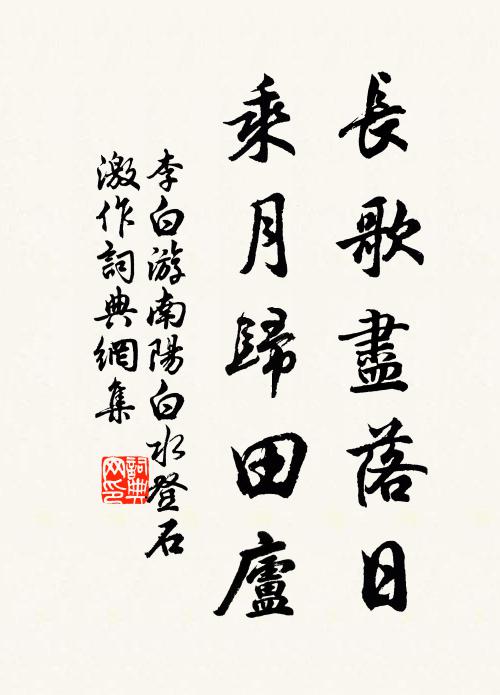 長歌盡落日
乘月歸田廬
李白游南陽白水登石
激作詞典網集
詞典
网印